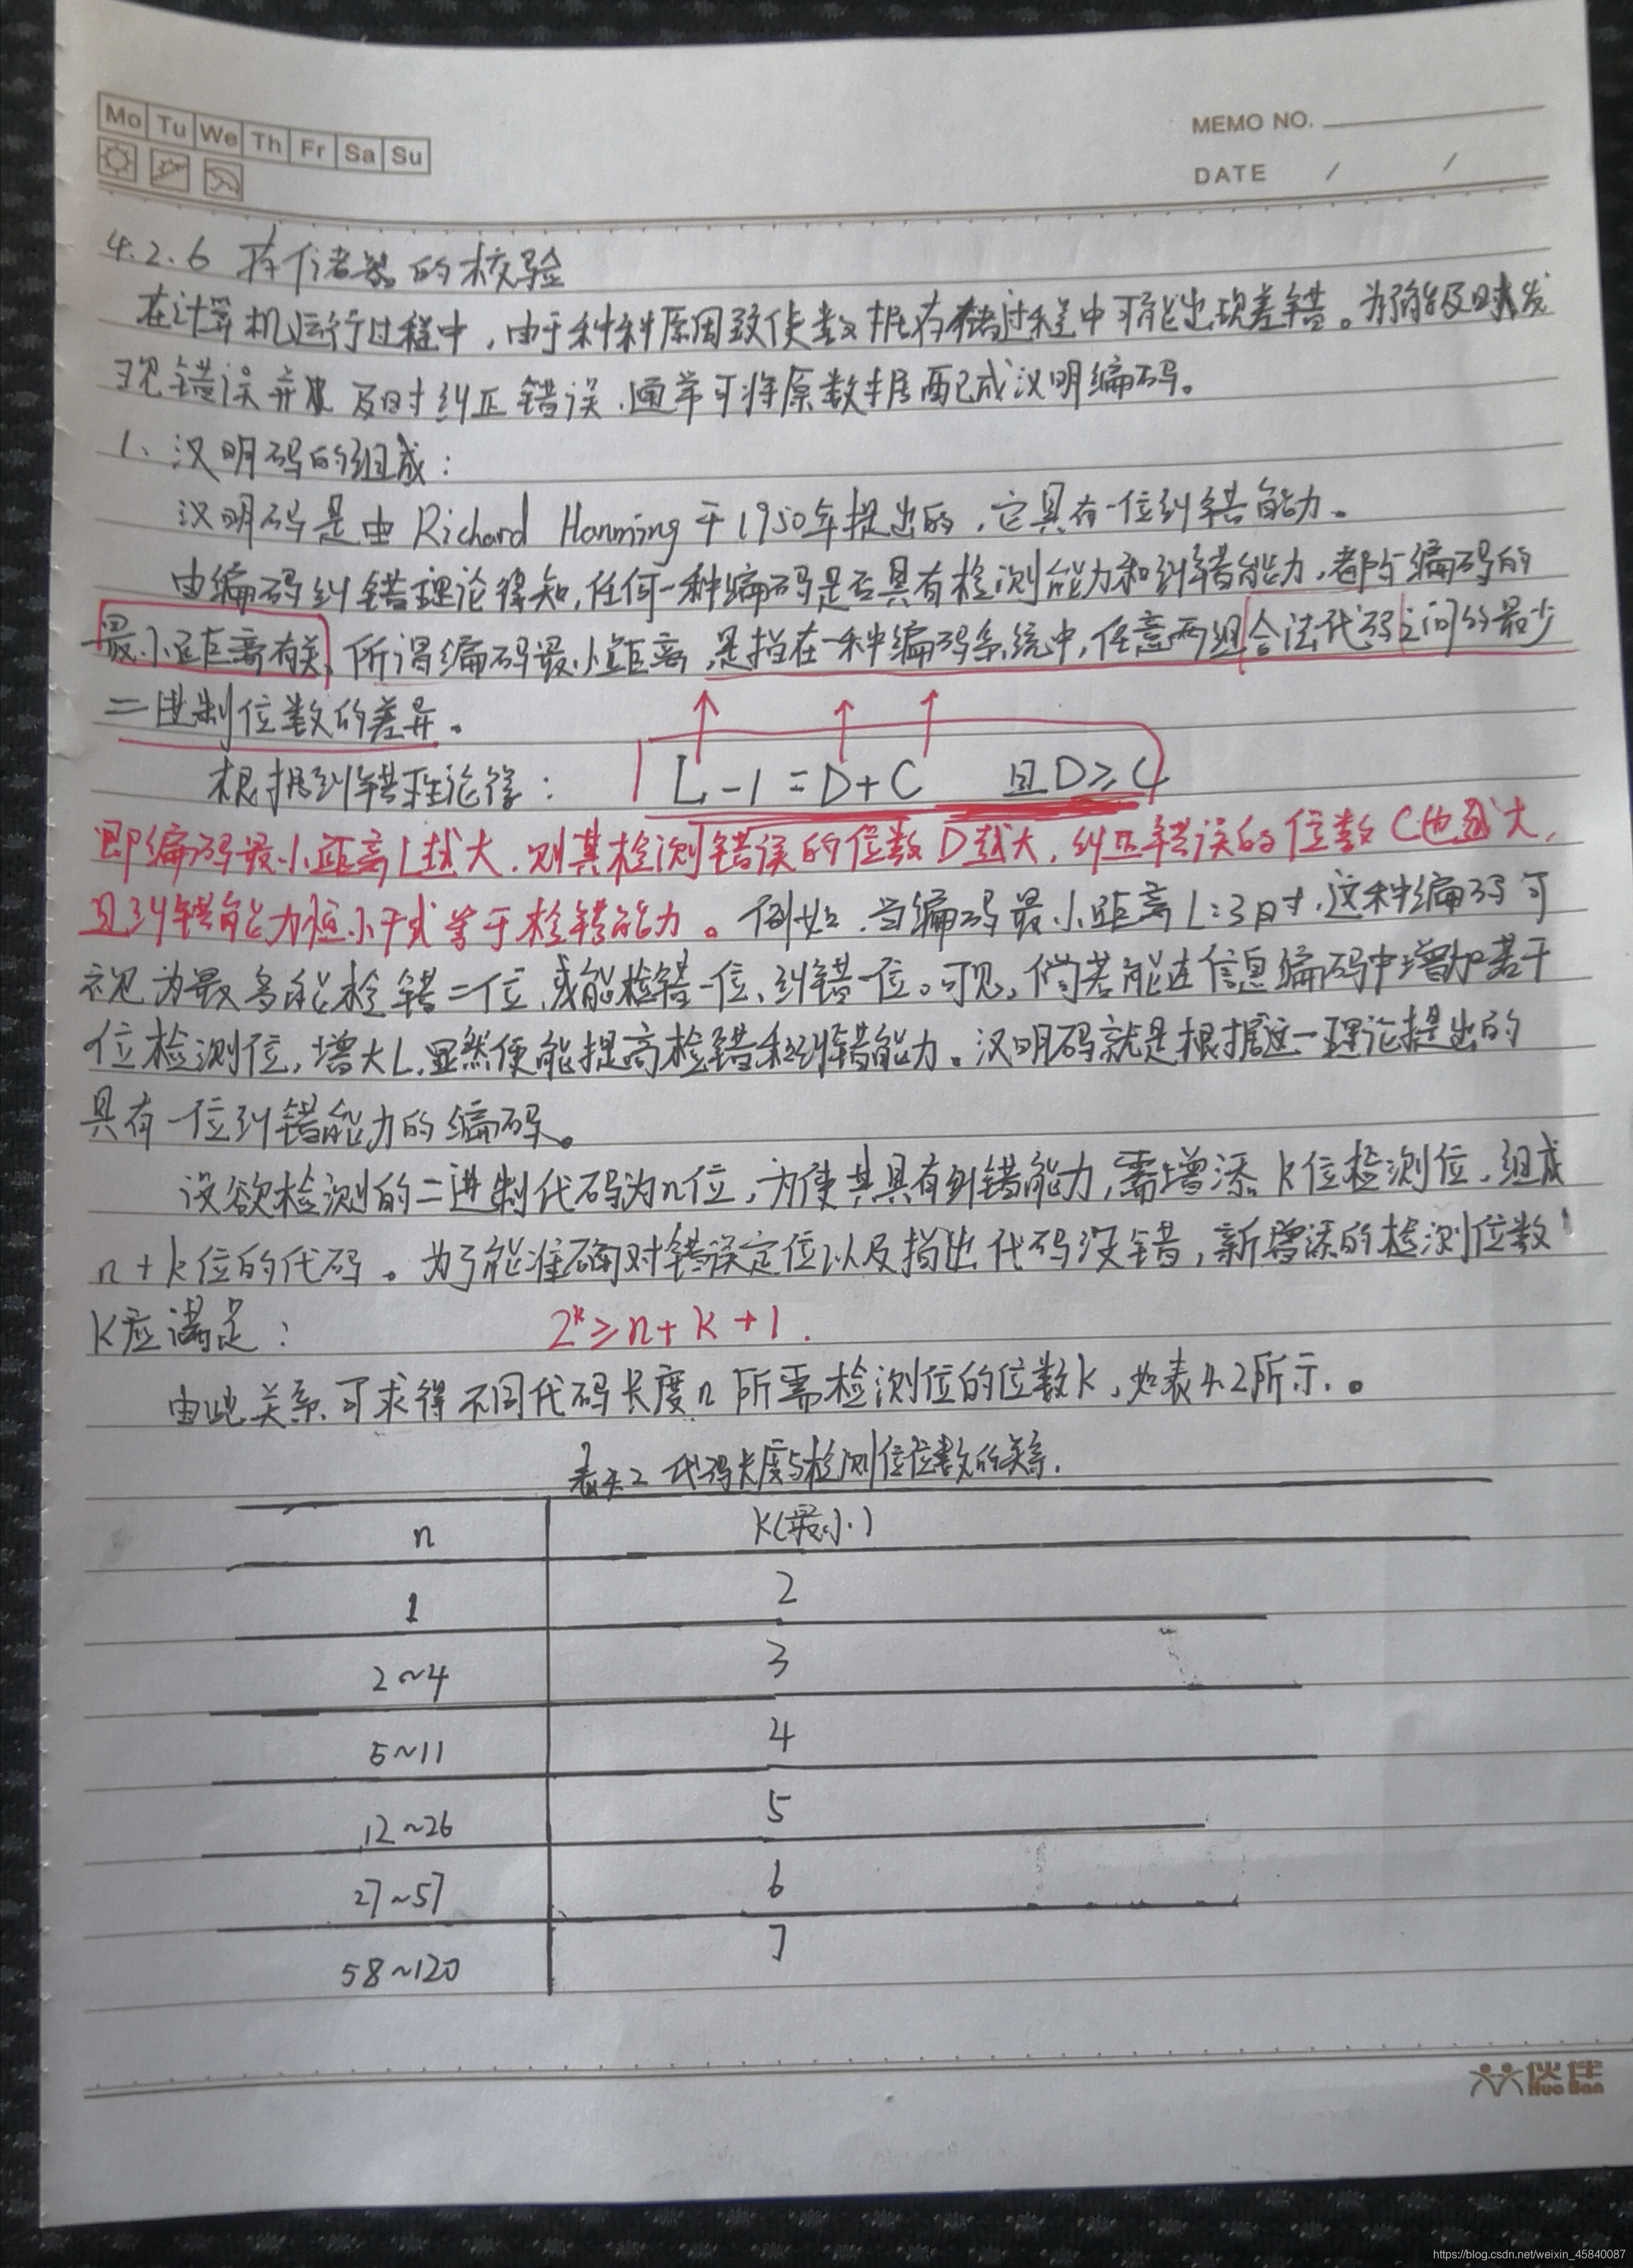 Mo Tu We Th Fr Sa Su
MEMO NO.
DATE / /
4.2.6 存储器的校验
在计算机运行过程中，由于种种原因致使数据在存储过程中可能出现差错。为了能及时发
现错误并及时纠正错误，通常可将原数据配成汉明编码。
1、汉明码的组成：
汉明码是由Richard Hanming于1950年提出的，它具有一位纠错能力。
由编码纠错理论得知，任何一种编码是否具有检测能力和纠错能力，都与编码的
最小距离有关，所谓编码最小距离，是指在一种编码系统中，任意两组合法代码之间的最少
二进制位数的差异。
根据纠错理论得：
L-1=D+C 且D≥C
即编码最小距离L越大，则其检测错误的位数D越大，纠正错误的位数C也越大，
且纠错能力恒小于或等于检错能力。例如，当编码最小距离L=3时，这种编码可
视为最多能检错二位，或能检错一位、纠错一位。可见，倘若能在信息编码中增加若干
位检测位，增大L，显然便能提高检错和纠错能力。汉明码就是根据这一理论提出的
具有一位纠错能力的编码。
设欲检测的二进制代码为n位，为使其具有纠错能力，需增添k位检测位，组成
n+k位的代码。为了能准确对错误定位以及指出代码没错，新增添的检测位数
k应满足：
2ᵏ≥n+k+1.
由此关系可求得不同代码长度n所需检测位的位数k，如表4.2所示。
表4.2 代码长度与检测位位数的关系.
n k(最小)
1 2
2~4 3
5~11 4
12~26 5
27~57 6
58~120 7
伙伴
Huo Ban
https://blog.csdn.net/weixin_45840087